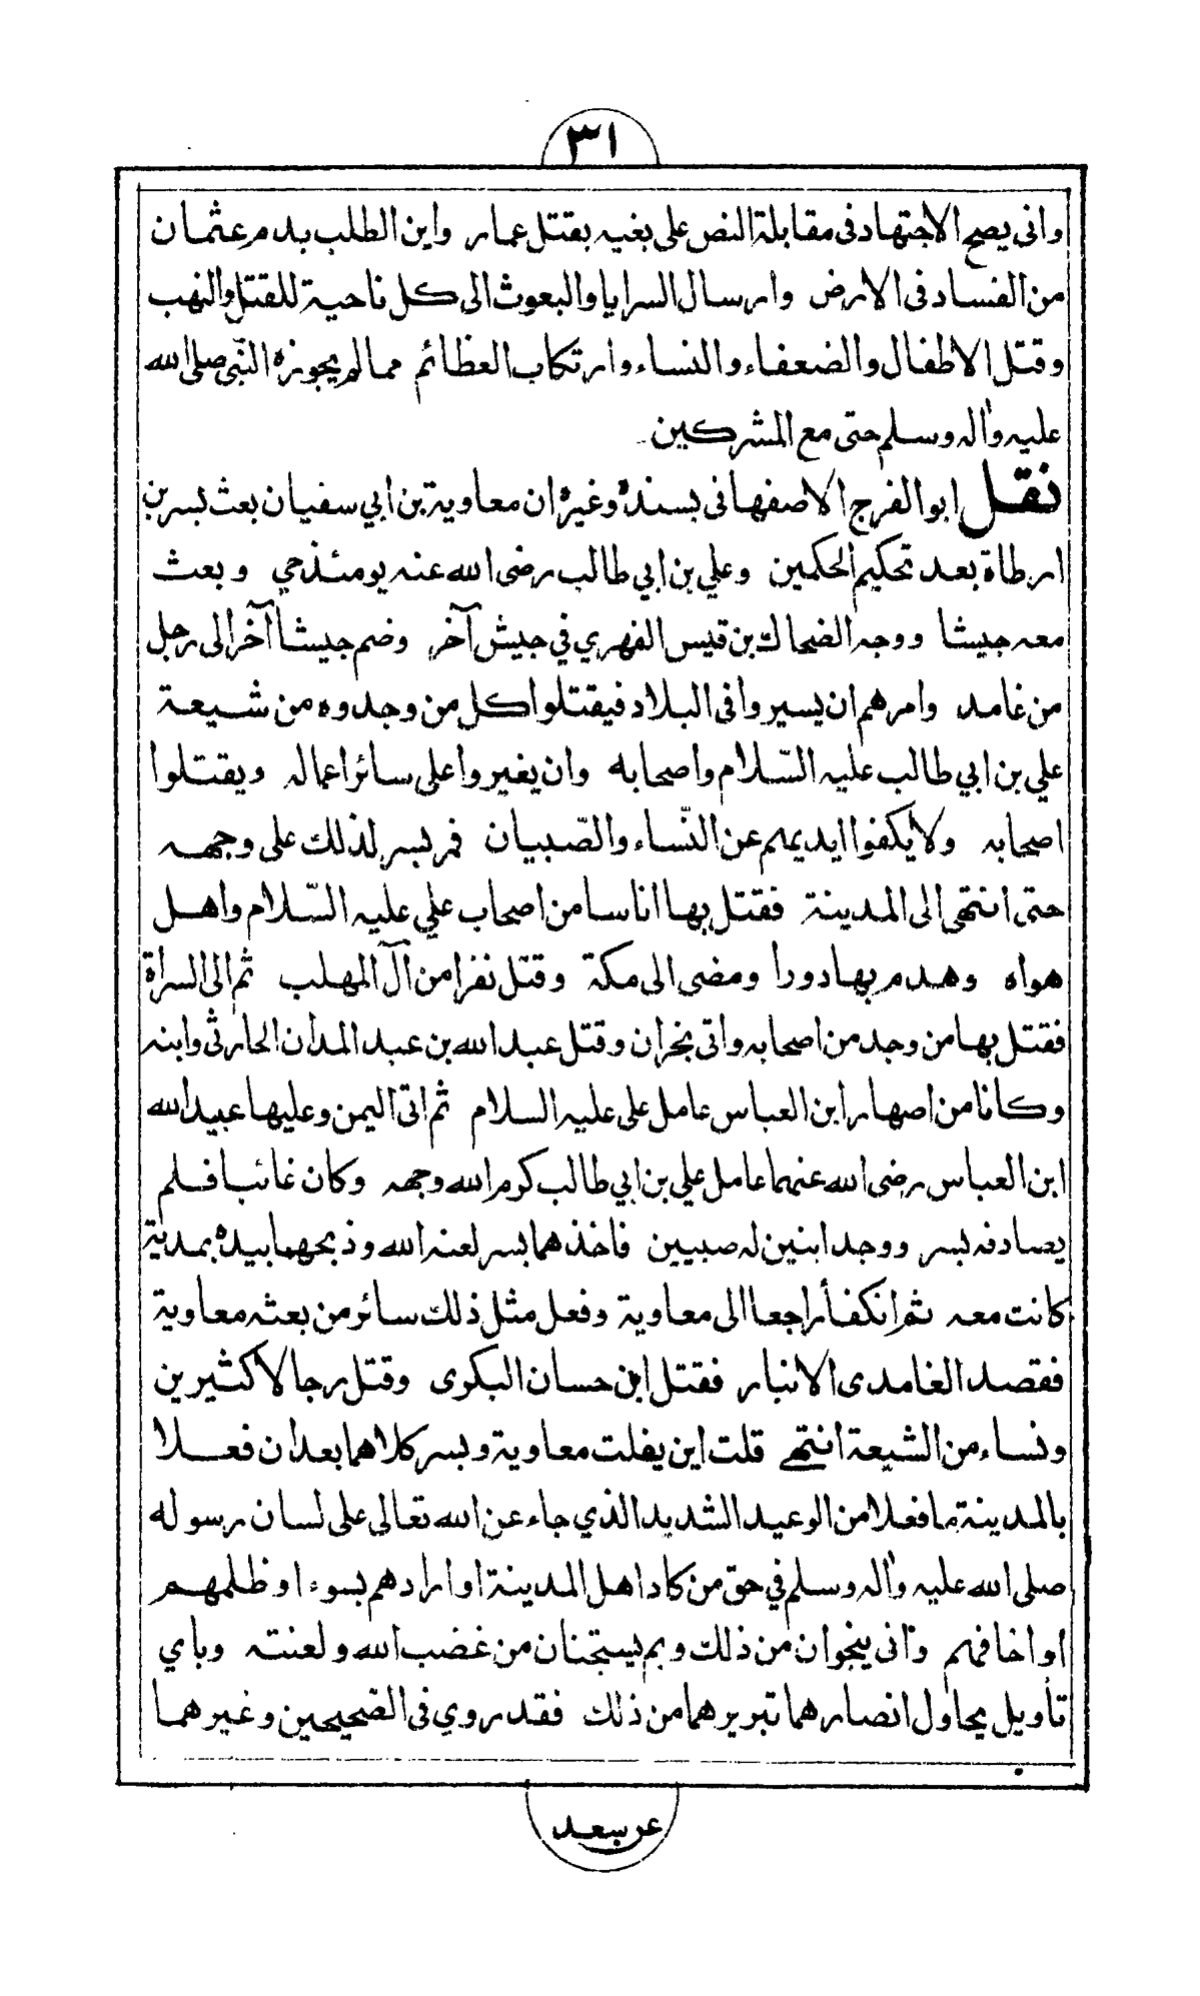 ٣١
وانى يصح الاجتهاد فى مقابلة النص على بغيه بقتل عمار واين الطلب بدم عثمان
من الفساد فى الارض وارسال السرايا والبعوث الى كل ناحية للقتل والنهب
وقتل الاطفال والضعفاء والنساء وارتكاب العظائم مما لم يجوزه النّبى صلى الله
عليه واٰله وسلم حتى مع المشركين
نقل ابو الفرج الاصفهانى بسنده وغيره ان معاوية بن ابي سفيان بعث بسر بن
ارطاة بعد تحكيم الحكمين وعلي بن ابي طالب رضى الله عنه يومئذ حي وبعث
معه جيشا ووجه الضحاك بن قيس الفهري في جيش آخر وضم جيشا آخر الى رجل
من غامد وامرهم ان يسيروا فى البلاد فيقتلوا كل من وجدوه من شيعة
علي بن ابي طالب عليه السّلام واصحابه وان يغيروا على سائر اعماله ويقتلوا
اصحابه ولا يكفوا ايديهم عن النّساء والصّبيان فمر بسر لذلك على وجهه
حتى انتهى الى المدينة فقتل بها اناسا من اصحاب علي عليه السّلام واهل
هواه وهدم بها دورا ومضى الى مكة وقتل نفرا من آل المهلب ثم الى السراة
فقتل بها من وجد من اصحابه واتى نجران وقتل عبد الله بن عبد المدان الحارثي وابنه
وكانا من اصهار ابن العباس عامل على عليه السلام ثم اتى اليمن وعليها عبيد الله
ابن العباس رضى الله عنهما عامل علي بن ابي طالب كرم الله وجهه وكان غائبا فلم
يصادفه بسر ووجد ابنين له صبيين فاخذهما بسر لعنه الله وذبحهما بيده بمدية
كانت معه ثم انكفأ راجعا الى معاوية وفعل مثل ذلك سائر من بعثه معاوية
فقصد الغامدى الانبار فقتل ابن حسان البكرى وقتل رجالا كثيرين
ونساء من الشيعة انتهى قلت اين يفلت معاوية وبسر كلاهما بعد ان فعلا
بالمدينة ما فعلا من الوعيد الشديد الذي جاء عن الله تعالى على لسان رسوله
صلى الله عليه واٰله وسلم في حق من كاد اهل المدينة او ارادهم بسوء او ظلمهم
او اخافهم وانى ينجوان من ذلك وبم يستجنان من غضب الله ولعنته وباي
تأويل يحاول انصارهما تبريرهما من ذلك فقد روي فى الصّحيحين وغيرهما
عن سعد